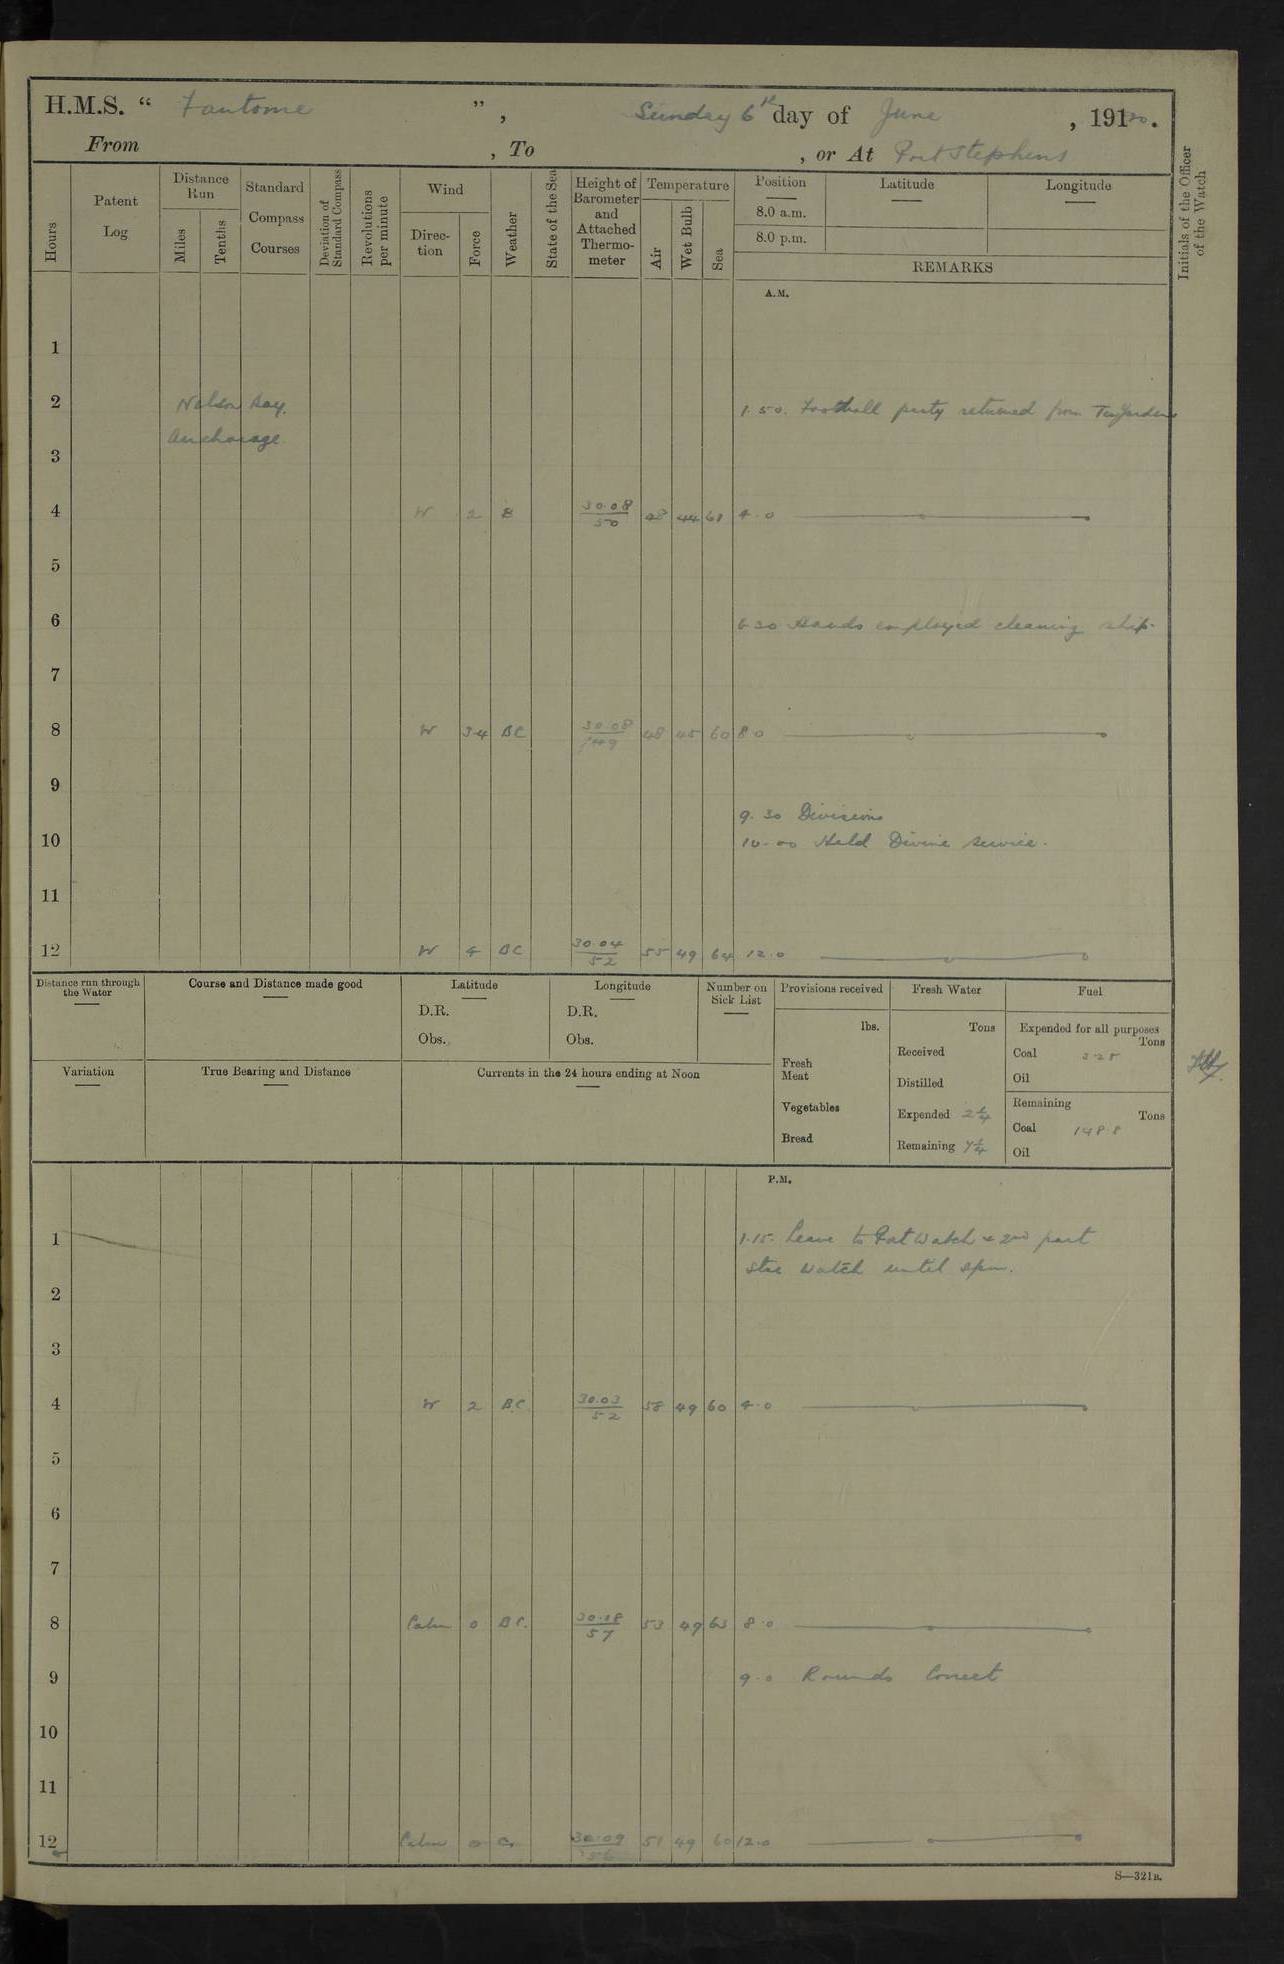 H.M.S. “ Fantome ” , Sunday 6th day of June , 19120.
From , To , or At Port Stephens
Hours
Patent Log
Distance Run
Miles
Tenths
Standard Compass Courses
Deviation of Standard Compass
Revolutions per minute
Wind
Direction
Force
Weather
State of the Sea
Height of Barometer and Attached Thermometer
Temperature
Air
Wet Bulb
Sea
Position
8.0 a.m.
8.0 p.m.
Latitude
Longitude
REMARKS
Initials of the Officer of the Watch
A.M.
1
2 Nelson Bay. 1.50. Football party returned from
Anchorage
3
4 W 2 B 30.08 50 48 44 61 4.0
5
6 6.30 Hands employed cleaning ship.
7
8 W 3.4 BC 30.08 49 48 45 60 8.0
9
9.30 Divisions
10 10.00 Held Divine Service.
11
12 W 4 BC 30.04 52 55 49 64 12.0
Distance run through the Water
Course and Distance made good
Latitude
D.R.
Obs.
Longitude
D.R.
Obs.
Number on Sick List
Provisions received
lbs.
Fresh Meat
Vegetables
Bread
Fresh Water
Tons
Received
Distilled
Expended 2¼
Remaining 7¼
Fuel
Expended for all purposes
Tons
Coal 3.25
Oil
Remaining
Tons
Coal 148.8
Oil
Variation
True Bearing and Distance
Currents in the 24 hours ending at Noon
P.M.
1 1.15. Leave to Port Watch & 2nd part
Star Watch until
2
3
4 W 2 B.C. 30.03 52 58 49 60 4.0
5
6
7
8 Calm 0 B.C. 30.18 57 53 49 63 8.0
9 9.0 Rounds Correct
10
11
12 Calm 0 30.09 56 51 49 60 12.0
S—321B.